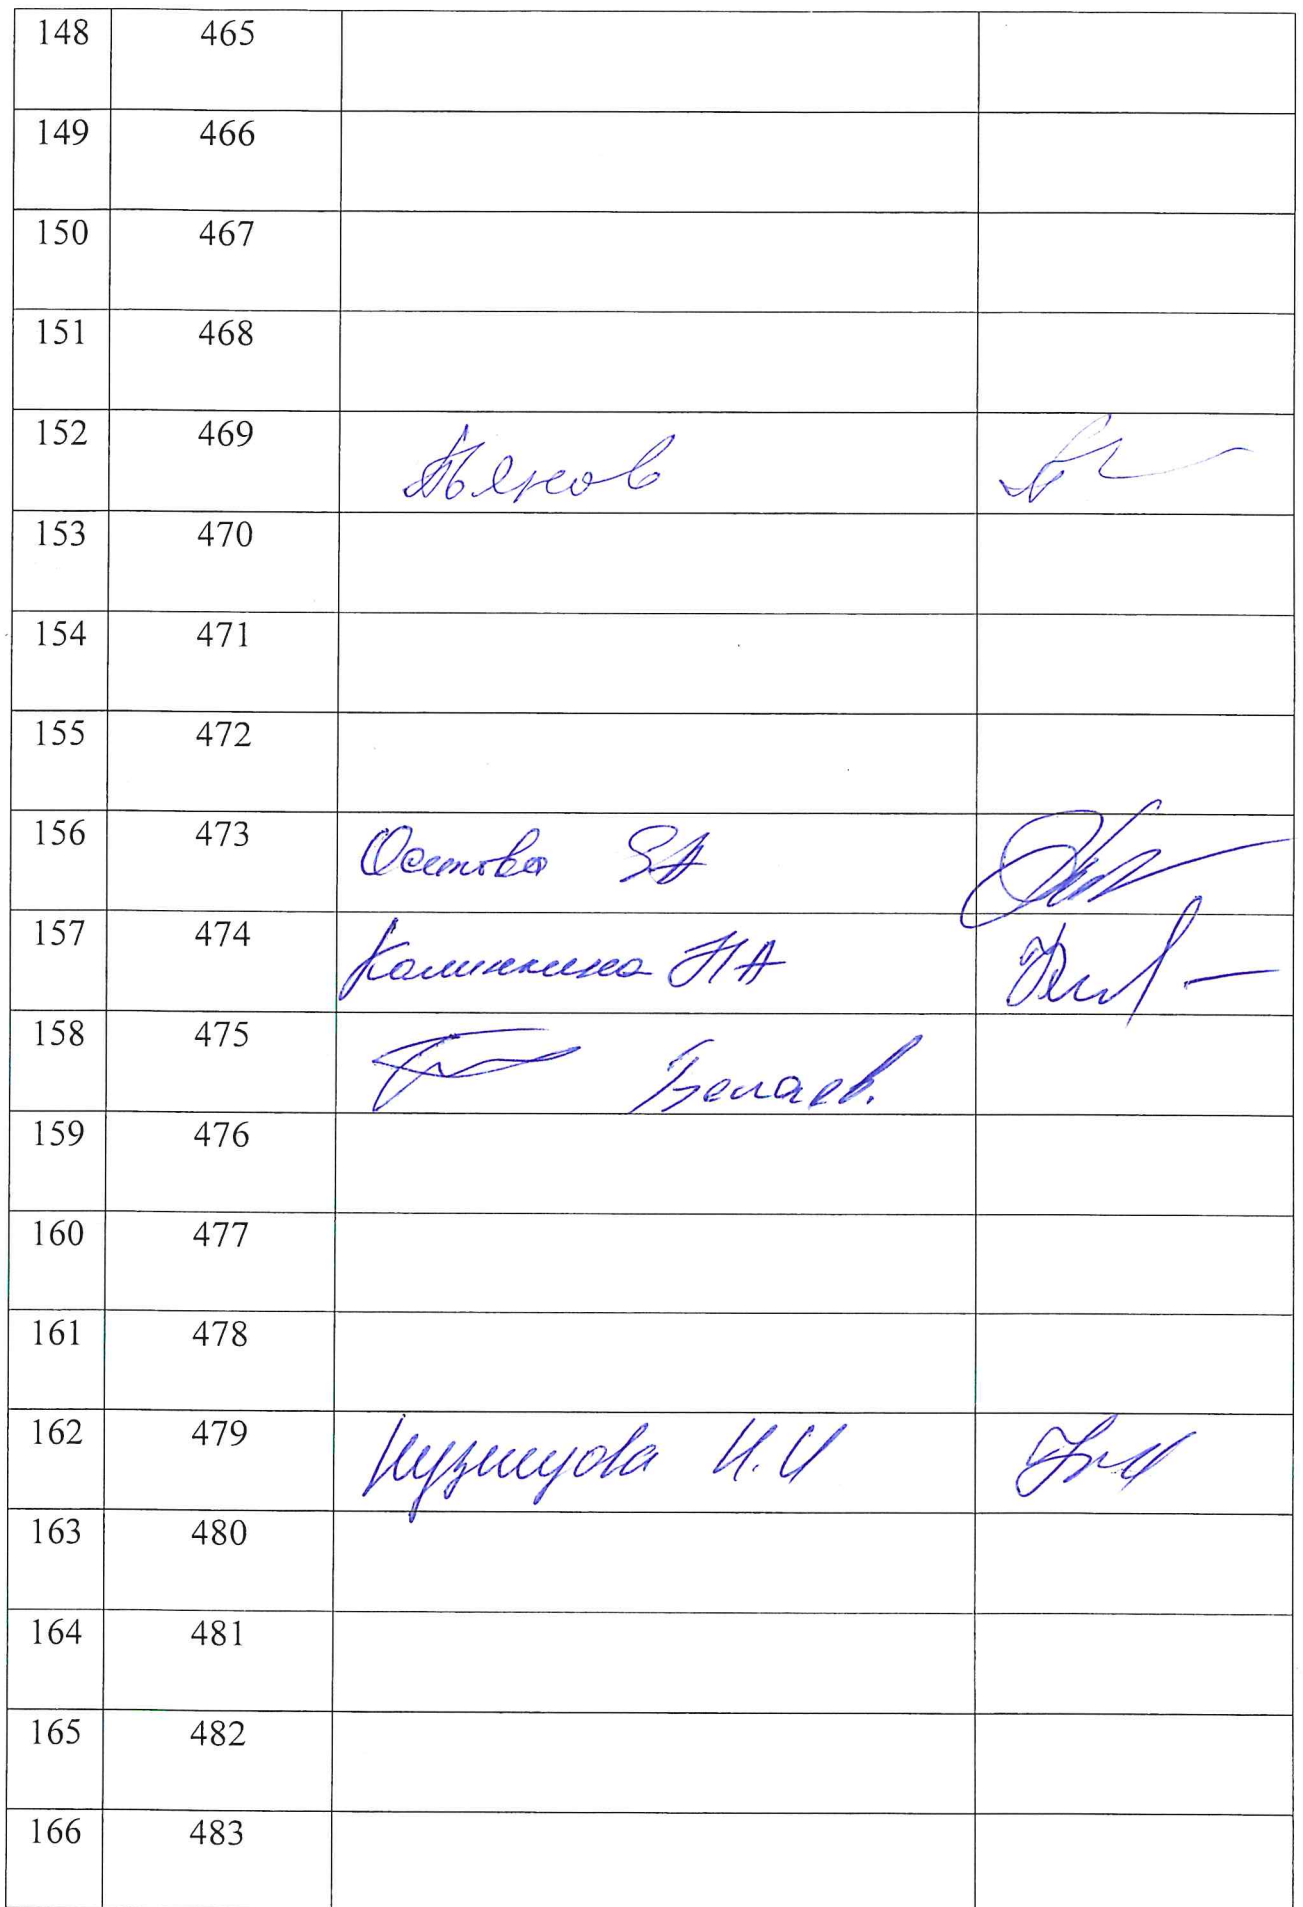 148 465
149 466
150 467
151 468
152 469 Пьянов
153 470
154 471
155 472
156 473 Осипова
157 474 Калинкина НА
158 475 Беляев.
159 476
160 477
161 478
162 479 Кузнецова Н.И
163 480
164 481
165 482
166 483